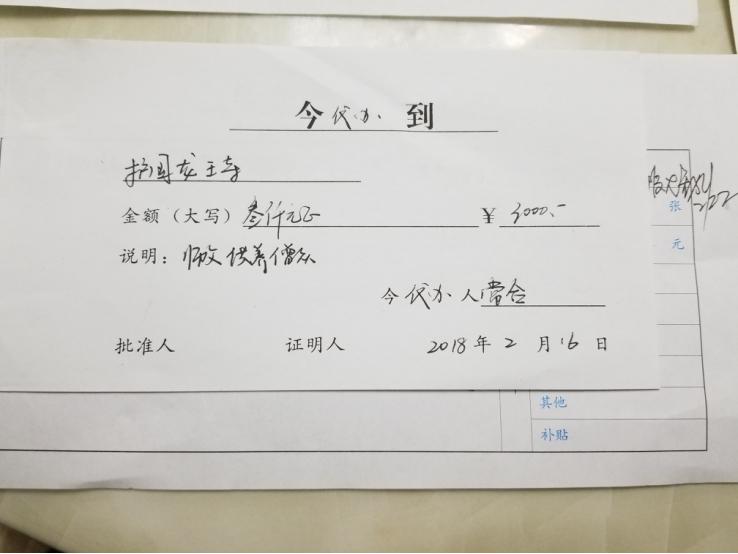 今代办到
护国龙王寺
金额（大写）叁仟元正 ¥ 3000.-
说明：师父供养僧众
今代办人常合
批准人 证明人 2018年2月16日
张
元
其他
补贴